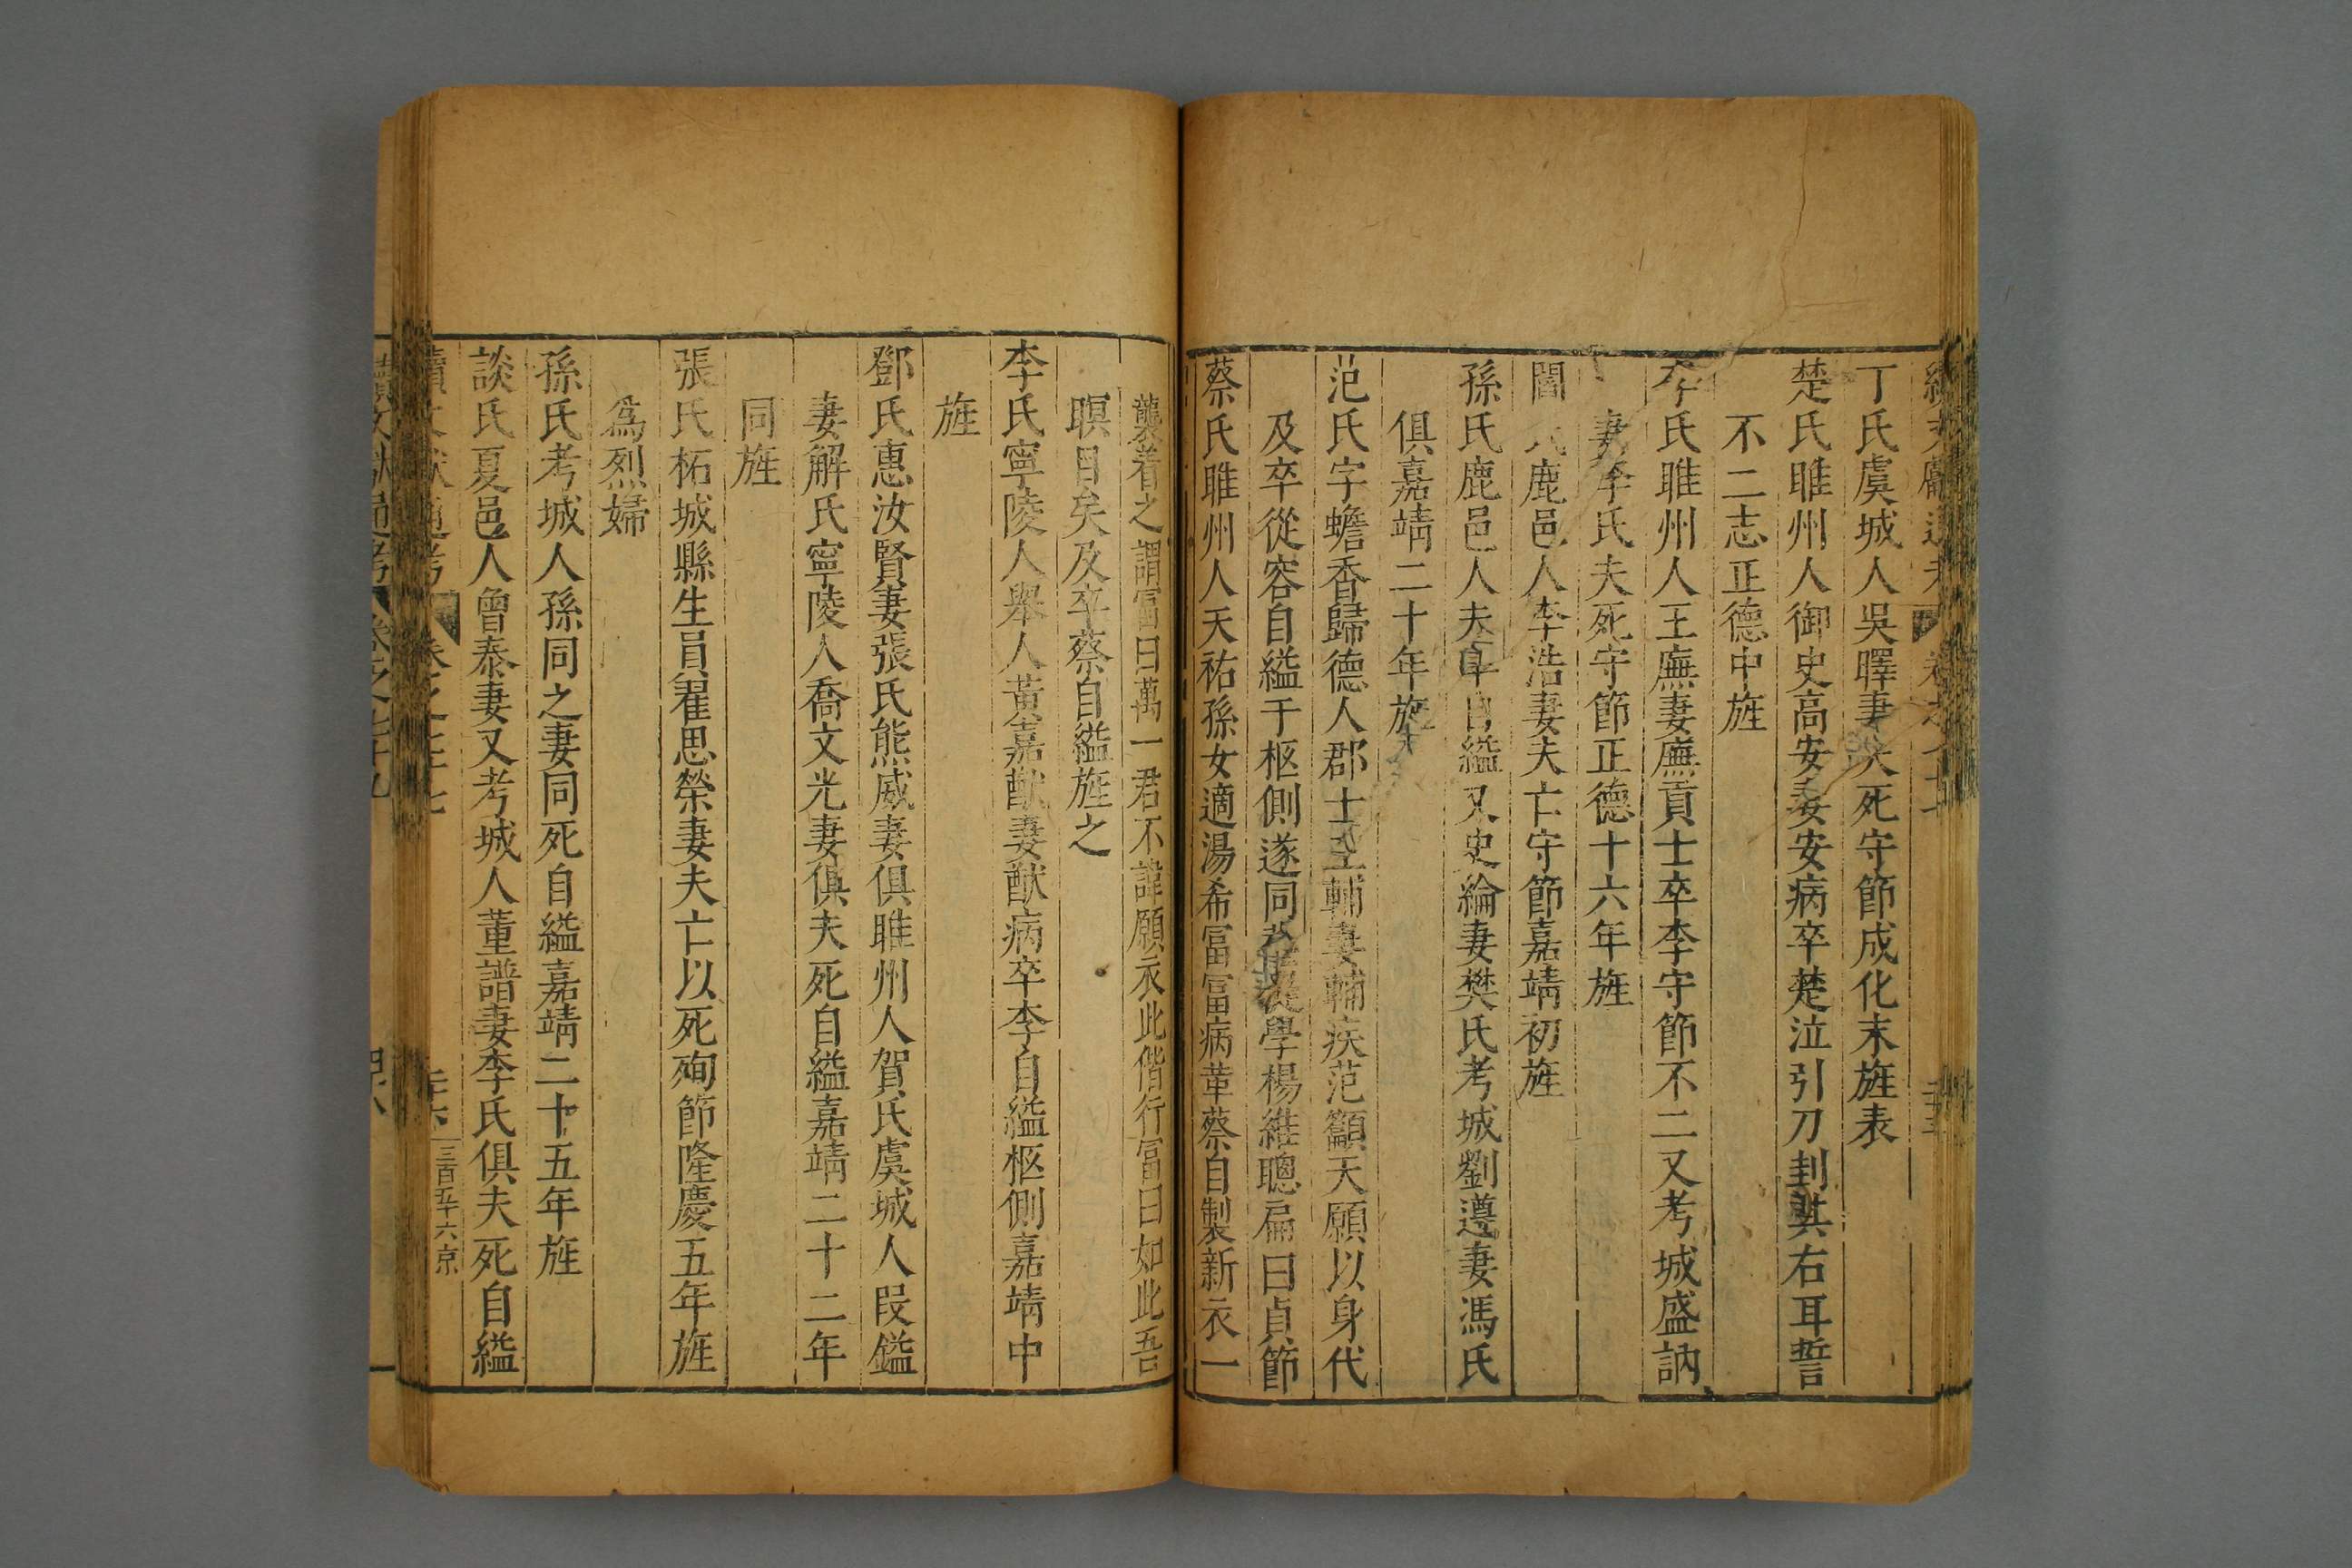 丁氏虞城人吳曎妻夫死守節成化末旌表
楚氏睢州人御史高安妻安病卒楚泣引刀刲其右耳誓
不二志正德中旌
李氏睢州人王廡妻廡貢士卒李守節不二又考城盛訥
妻李氏夫死守節正德十六年旌
閻氏鹿邑人李浩妻夫亡守節嘉靖初旌
孫氏鹿邑人夫卒自縊又史綸妻樊氏考城劉遵妻馮氏
俱嘉靖二十年旌
范氏字蟾香歸德人郡士輔妻輔疾范籲天願以身代
及卒從容自縊于柩側遂同學楊維聰扁曰貞節
蔡氏睢州人天祐孫女適湯希富富病革蔡自製新衣一
襲着之謂富曰萬一君不諱願衣此偕行富曰如此吾
瞑目矣及卒蔡自縊旌之
李氏寧陵人舉人黃嘉猷妻猷病卒李自縊柩側嘉靖中
旌
鄧氏惠汝賢妻張氏熊威妻俱睢州人賀氏虞城人段鎰
妻解氏寧陵人喬文光妻俱夫死自縊嘉靖二十二年
同旌
張氏柘城縣生員翟思榮妻夫亡以死殉節隆慶五年旌
為烈婦
孫氏考城人孫同之妻同死自縊嘉靖二十五年旌
談氏夏邑人曾泰妻又考城人董譜妻李氏俱夫死自縊
三百五十六京